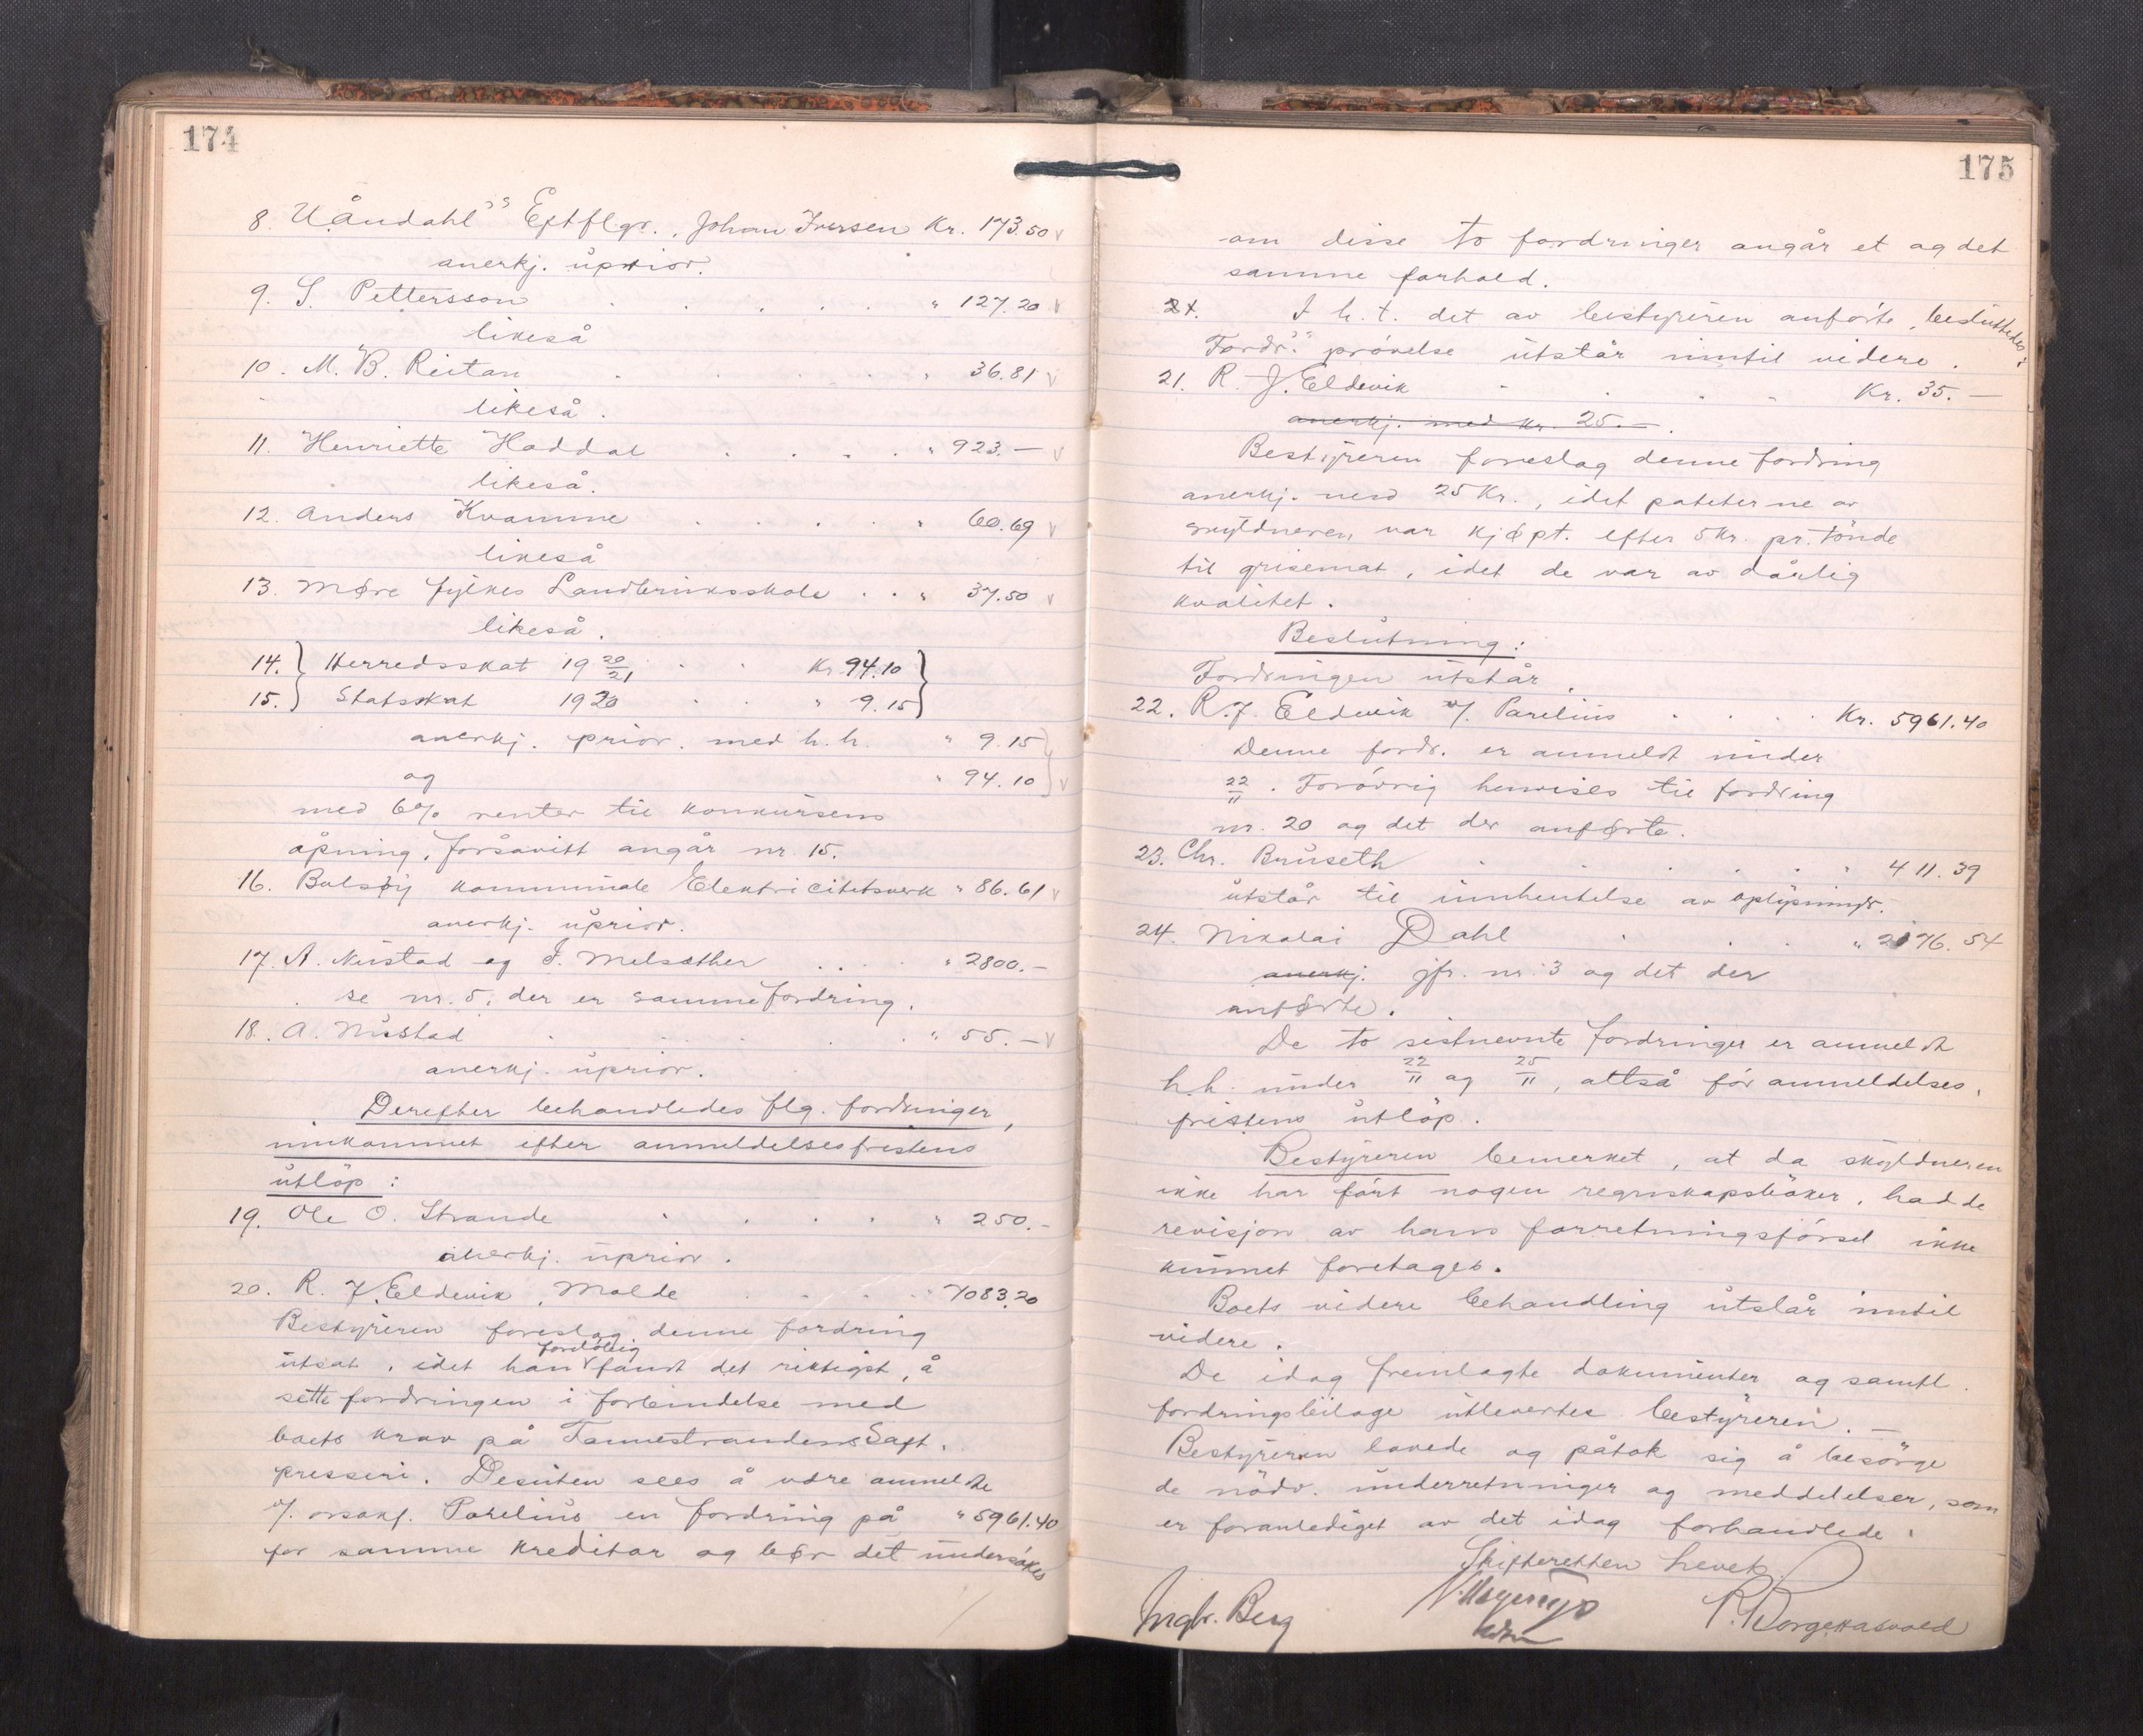 174
8. Uåndahl's Eftflgr., Johan Iversen Kr. 173.50 v
anerkj. uprior.
9. S. Pettersson . . . . " 127.20 v
likeså
10. M. B. Reitan . . . . " 36.81 v
likeså.
11. Henriette Haddal . . . . " 923.— v
likeså.
12. Anders Kvamme . . . . " 60.69 v
likeså
13. Møre fylkes Landbruksskole . . " 37.50 v
likeså.
14. } Herredsskat 19 20/21 . . Kr. 94.10 }
15. } Statsskat 1920 . . " 9.15 }
anerkj. prior. med h.h. " 9.15 }
og " 94.10 } v
med 6% renter til konkursens
åpning, forsåvitt angår nr. 15.
16. Bolsøy kommunale Elektricitetsverk " 86.61 v
anerkj. uprior.
17. A. Nustad og I. Melsæther . . . " 2800.–
se nr. 5, der er samme fordring.
18. A. Nustad . . . . " 55.— v
anerkj. uprior.
Derefter behandledes flg. fordringer,
innkommet efter anmeldelsesfristens
utløp :
19. Ole O. Strande . . . . " 250.–
anerkj. uprior.
20. R. J. Eldevik, Molde . . . " 7083.20
Bestyreren foreslog denne fordring
utsat, idet han foreløbig fandt det riktigst, å
sette fordringen i forbindelse med
boets krav på Fannestrandens Saft.
presseri. Desuten sees å være anmeldte
v/. orsakf. Parelius en fordring på " 5961.40
for samme kreditor og bør det undersøkes
175
om disse to fordringer angår et og det
samme forhold.
I h. t. det av bestyreren anførte, besluttedes:
Fordr.'s prøvelse utstår inntil videre.
21. R. J. Eldevik . . . . Kr. 35.—
anerkj. med Kr. 25.—.
Bestyreren foreslog denne fordring
anerkj. med 25 Kr., idet poteterne av
skyldneren var kjøpt. efter 5 Kr. pr. tønde
til grisemat, idet de var av dårlig
kvalitet.
Beslutning :
Fordringen utstår.
22. R. J. Eldevik v/. Parelius . . . . Kr. 5961.40
Denne fordr. er anmeldt under
22/11. Forøvrig henvises til fordring
nr. 20 og det der anførte.
23. Chr. Bruseth . . . . " 411.39
utstår til innhentelse av oplysningr.
24. Nikolai Dahl . . . " 2176.54
anerkj. jfr. nr. 3 og det der
anførte.
De to sistnevnte fordringer er anmeldt
h.h. under 22/11 og 25/11, altså før anmeldelses.
fristens utløp.
Bestyreren bemerket, at da skyldneren
ikke har ført nogen regnskapsbøker, hadde
revisjon av hans forretningsførsel ikke
kunnet foretages.
Boets videre behandling utstår inntil
videre.
De idag fremlagte dokumenter og samtl.
fordringsbilage utlevertes bestyreren. —
Bestyreren lovede og påtok sig å besørge
de nødv. underretninger og meddelelser, som
er foranlediget av det idag forhandlede.
Skifteretten hevet.
Ingbr. Berg